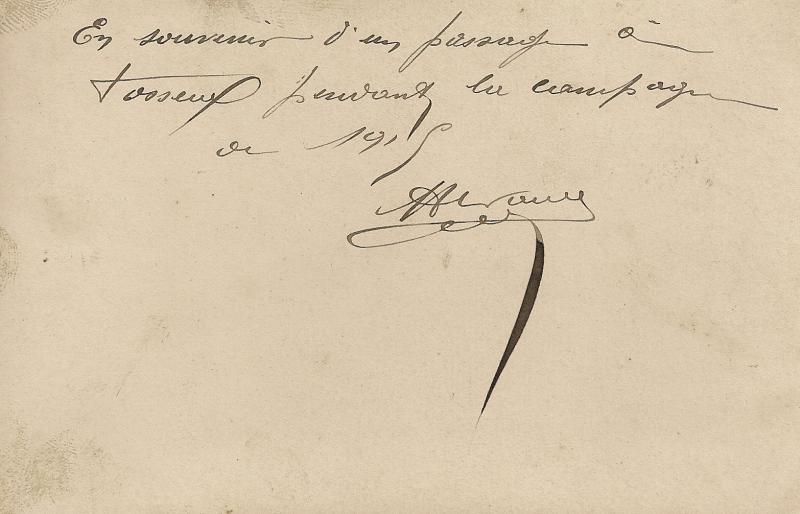 En souvenir d'un passage à
Fosseux pendant la campagne
de 1915